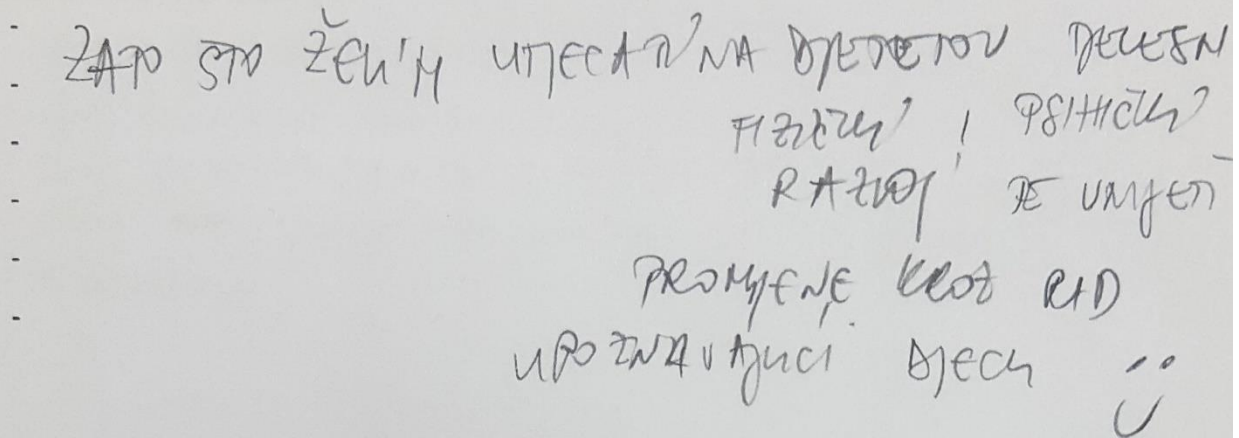 ZATO ŠTO ŽELIM UTJECATI NA DJETETOV TJELESN
FIZIČKI I PSIHIČKI
RAZVOJ TE UNIJETI
PROMJENE KROZ RAD
UPOZNAVAJUCI DJECU